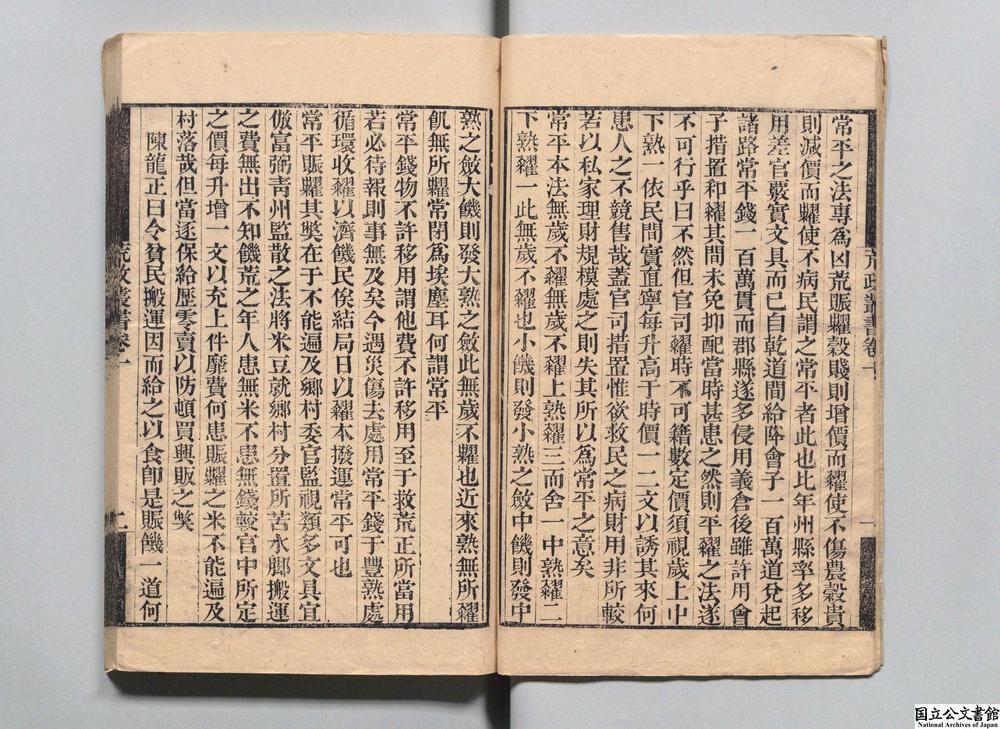 常平之法專為凶荒賑糶穀賤則增價而糴使不傷農穀貴
則減價而糶使不病民謂之常平者此也比年州縣率多移
用差官覈實文具而已自乾道間給降會子一百萬道兌起
諸路常平錢一百萬貫而郡縣遂多侵用義倉後雖許用會
子措置和糴其間未免抑配當時甚患之然則平糴之法遂
不可行乎曰不然但官司糴時不可籍數定價須視歲上中
下熟一依民間實直寧每升高于時價一二文以誘其來何
患人之不競售哉蓋官司措置惟欲救民之病財用非所較
若以私家理財規模處之則失其所以為常平之意矣
常平本法無歲不糴無歲不糶上熟糴三而舍一中熟糴二
下熟糴一此無歲不糴也小饑則發小熟之斂中饑則發中
荒政叢書卷一
熟之斂大饑則發大熟之斂此無歲不糶也近來熟無所糴
飢無所糶常閉為埃塵耳何謂常平
常平錢物不許移用謂他費不許移用至于救荒正所當用
若必待報則事無及矣今遇災傷去處用常平錢于豐熟處
循環收糴以濟饑民俟結局日以糴本撥運常平可也
常平賑糶其獘在于不能遍及鄉村委官監視類多文具宜
倣富弼青州監散之法將米豆就鄉村分置所苦水脚搬運
之費無出不知饑荒之年人患無米不患無錢較官中所定
之價每升增一文以充上件靡費何患賑糶之米不能遍及
村落哉但當逐保給歷零賣以防頓買興販之獘
陳龍正曰令貧民搬運因而給之以食卽是賑饑一道何
荒政叢書卷一
二
国立公文書館
National Archives of Japan